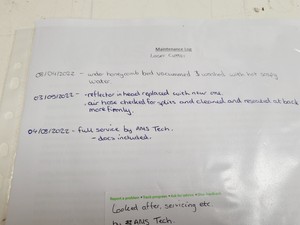 Maintenance Log
Laser Cutter
08/04/2022 - under honeycomb bed vacuumed & washed with hot soapy
water.
03/05/2022 - reflector in head replaced with new one.
- air hose checked for splits and cleaned and reseated at back
more firmly.
04/08/2022 - full service by AMS Tech.
- docs included.
Looked after, servicing etc.
by AMS Tech.